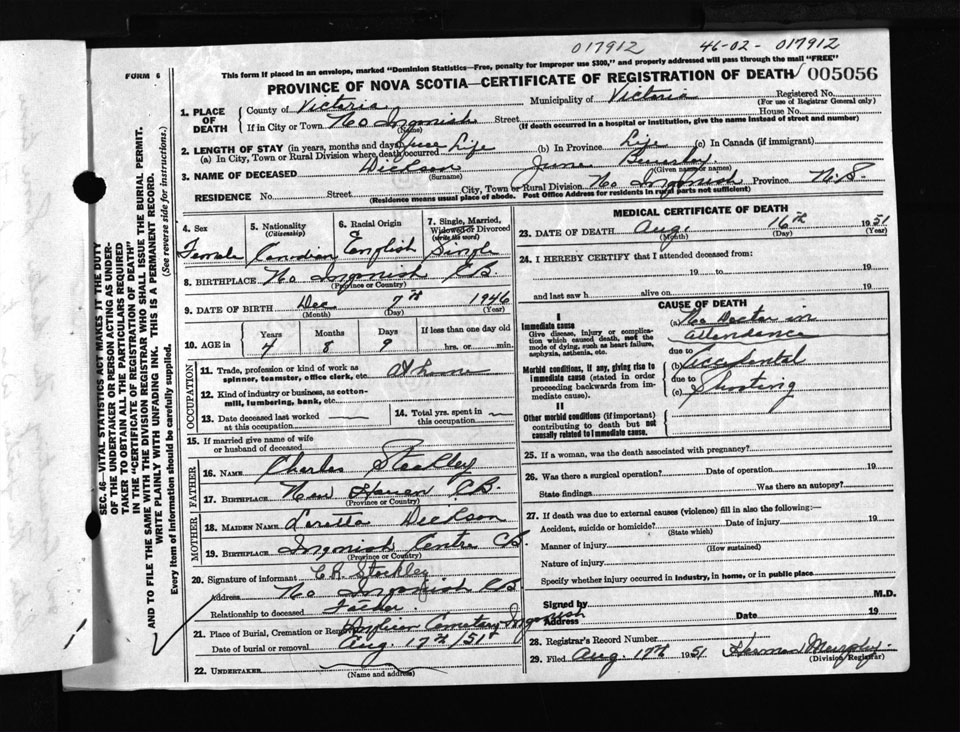 017912 46-02- 017912
FORM 6
This form if placed in an envelope, marked "Dominion Statistics—Free, penalty for improper use $300," and properly addressed will pass through the mail "FREE"
PROVINCE OF NOVA SCOTIA—CERTIFICATE OF REGISTRATION OF DEATH 005056
1. PLACE OF DEATH
County of Victoria Municipality of Victoria Registered No.
(For use of Registrar General only)
If in City or Town No Ingonish Street House No.
(Name) (If death occurred in a hospital or institution, give the name instead of street and number)
2. LENGTH OF STAY (in years, months and days)
(a) In City, Town or Rural Division where death occurred Life (b) In Province Life (c) In Canada (if immigrant)
3. NAME OF DECEASED June Beverley
(Surname) (Given name or names)
RESIDENCE No. Street City, Town or Rural Division No Ingonish Province N.S.
(Residence means usual place of abode. Post Office Address for residents in rural parts not sufficient)
4. Sex
Female
5. Nationality
(Citizenship)
Canadian
6. Racial Origin
English
7. Single, Married, Widowed or Divorced
(write the word)
Single
8. BIRTHPLACE No Ingonish CB.
(Province or Country)
9. DATE OF BIRTH Dec 7th 1946
(Month) (Day) (Year)
10. AGE in
Years Months Days If less than one day old
4 8 9 hrs. or min.
OCCUPATION
11. Trade, profession or kind of work as spinner, teamster, office clerk, etc. At home
12. Kind of industry or business, as cotton-mill, lumbering, bank, etc.
13. Date deceased last worked at this occupation
14. Total yrs. spent in this occupation
15. If married give name of wife or husband of deceased
FATHER
16. NAME Charles Stockley
17. BIRTHPLACE New Haven CB.
(Province or Country)
MOTHER
18. MAIDEN NAME Loretta
19. BIRTHPLACE Ingonish Centre CB.
(Province or Country)
20. Signature of informant C R. Stockley
Address No Ingonish CB
Relationship to deceased Father.
21. Place of Burial, Cremation or Removal Anglican Cemetery Ingonish
Date of burial or removal Aug. 17th/51
22. UNDERTAKER
(Name and address)
MEDICAL CERTIFICATE OF DEATH
23. DATE OF DEATH Aug. 16th 1951
(Month) (Day) (Year)
24. I HEREBY CERTIFY that I attended deceased from:
19 to 19
and last saw h alive on 19
CAUSE OF DEATH
I
Immediate cause
Give disease, injury or complication which caused death, not the mode of dying, such as heart failure, asphyxia, asthenia, etc.
(a) No Doctor in attendance
due to
Morbid conditions, if any, giving rise to immediate cause (stated in order proceeding backwards from immediate cause).
(b) Accidental
due to
(c) Shooting
II
Other morbid conditions (if important) contributing to death but not causally related to immediate cause.
25. If a woman, was the death associated with pregnancy?
26. Was there a surgical operation? Date of operation 19
State findings Was there an autopsy?
27. If death was due to external causes (violence) fill in also the following:—
Accident, suicide or homicide? Date of injury 19
(State which)
Manner of injury
(How sustained)
Nature of injury
Specify whether injury occurred in industry, in home, or in public place
Signed by M.D.
Address Date 19
28. Registrar's Record Number
29. Filed Aug. 17th 1951 Herman Murphy
(Division Registrar)
SEC. 46—VITAL STATISTICS ACT MAKES IT THE DUTY
OF THE UNDERTAKER OR PERSON ACTING AS UNDER-
TAKER TO OBTAIN ALL THE PARTICULARS REQUIRED
IN THE "CERTIFICATE OF REGISTRATION OF DEATH"
AND TO FILE THE SAME WITH THE DIVISION REGISTRAR WHO SHALL ISSUE THE BURIAL PERMIT.
WRITE PLAINLY WITH UNFADING INK. THIS IS A PERMANENT RECORD.
Every item of information should be carefully supplied. (See reverse side for instructions.)